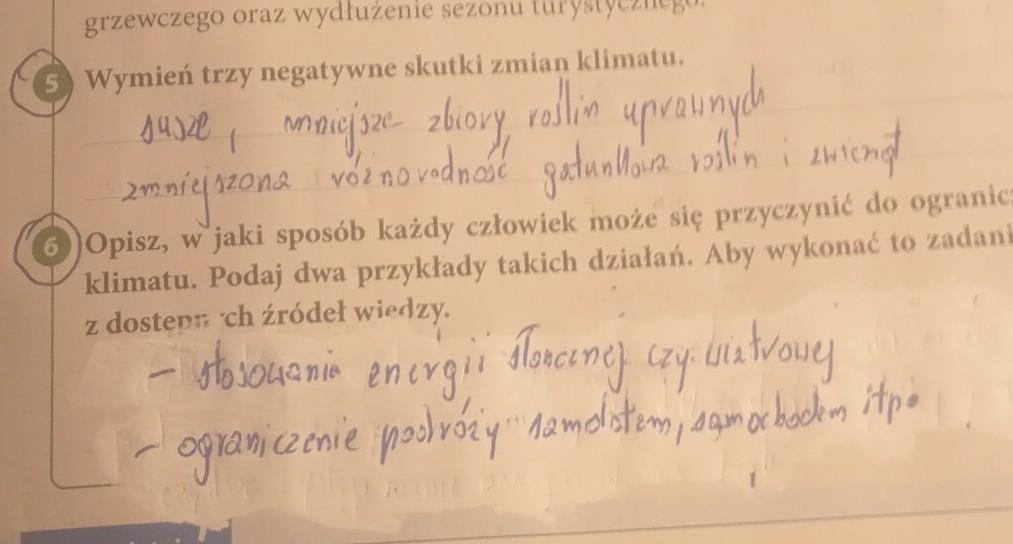 grzewczego oraz wydłużenie sezonu turystycznego.
5 Wymień trzy negatywne skutki zmian klimatu.
susze, mniejsze zbiory roślin uprawnych
zmniejszona różnorodność gatunkowa roślin i zwierząt
6 Opisz, w jaki sposób każdy człowiek może się przyczynić do ogranicz
klimatu. Podaj dwa przykłady takich działań. Aby wykonać to zadani
z dostępnych źródeł wiedzy.
- stosowanie energii słonecznej czy wiatrowej
- ograniczenie podróży samolotem, samochodem itp.